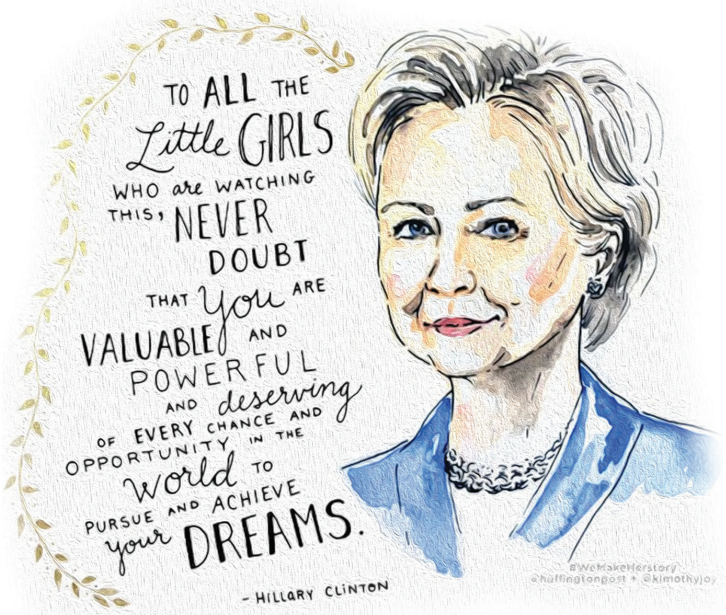 TO ALL THE
Little GIRLS
WHO are WATCHING
THIS, NEVER
DOUBT
THAT You ARE
VALUABLE AND
POWERFUL
AND deserving
OF EVERY CHANCE AND
OPPORTUNITY IN THE
World TO
PURSUE AND ACHIEVE
your DREAMS.
- HILLARY CLINTON
#WeMakeHerstory
@huffingtonpost + @kimothyjoy